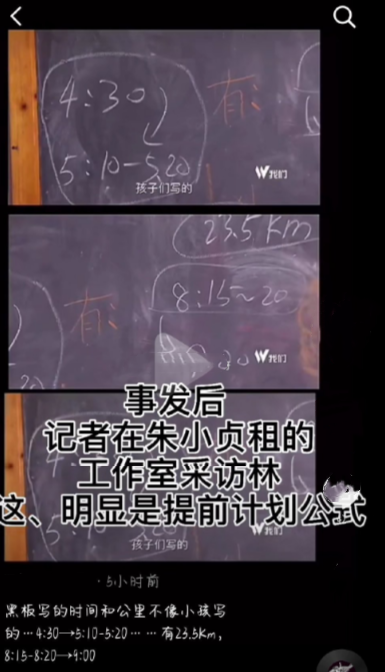 4:30
5:10-5:20
有:
孩子们写的
我们
23.5km
8:15~20
有:
我们
事发后
记者在朱小贞租的
工作室采访林
这、明显是提前计划公式
我们
孩子们写的
·5小时前
黑板写的时间和公里不像小孩写
的…4:30→5:10-5:20……有23.5Km,
8:15-8:20→9:00